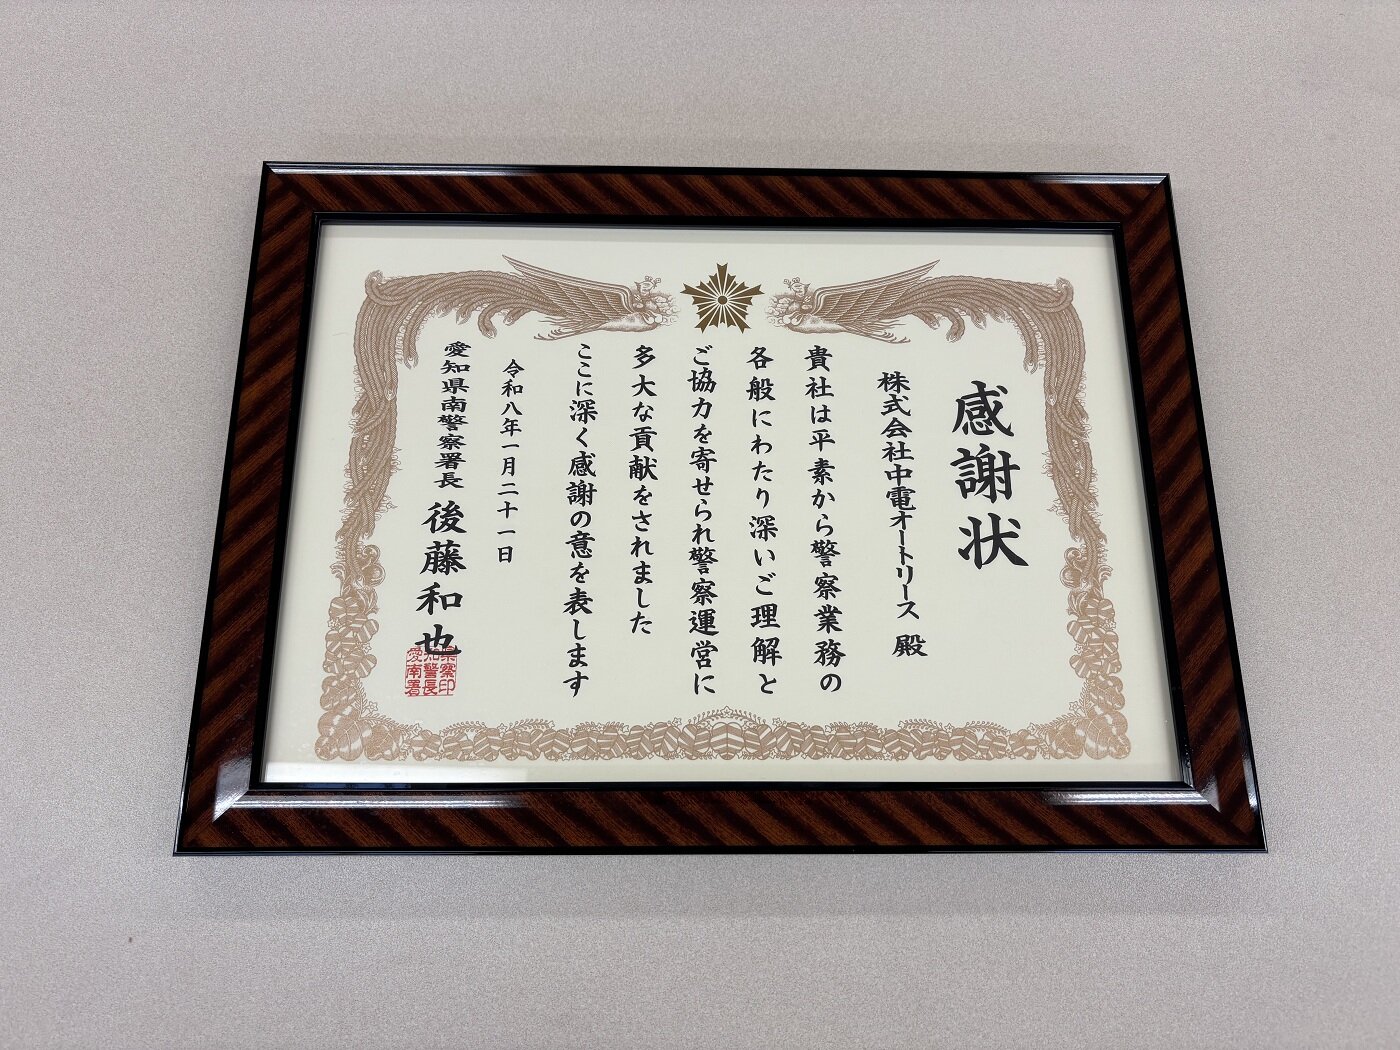 感謝状
株式会社中電オートリース 殿
貴社は平素から警察業務の
各般にわたり深いご理解と
ご協力を寄せられ警察運営に
多大な貢献をされました
ここに深く感謝の意を表します
令和八年一月二十一日
愛知県南警察署長 後藤和也
愛知県南警察署長印